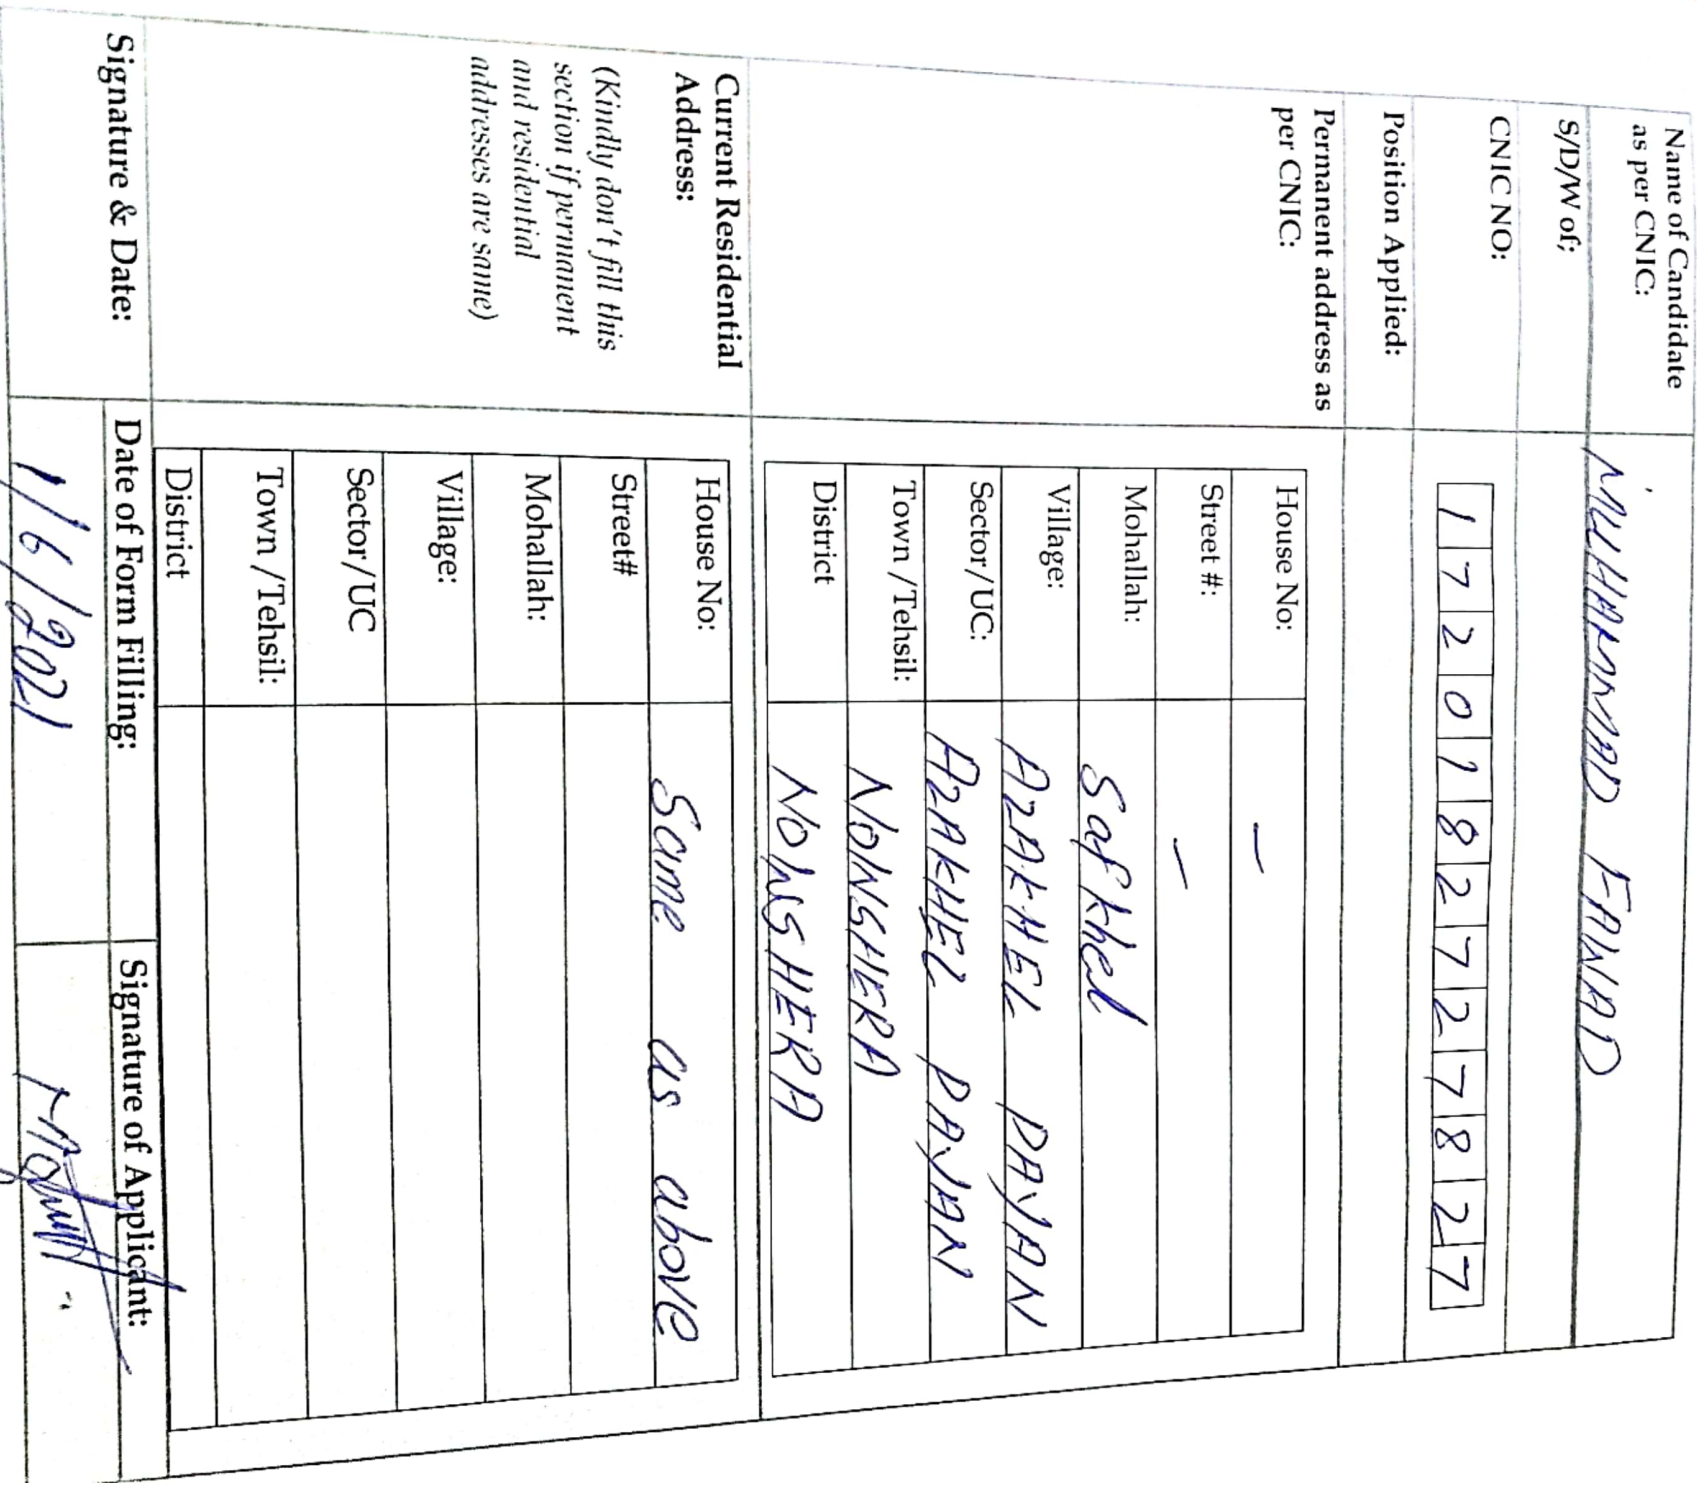 Name of Candidate as per CNIC: MUHAMMAD FAWAD
S/D/W of;
CNIC NO: 1 7 2 0 1 8 2 7 2 7 8 2 7
Position Applied:
Permanent address as per CNIC:
House No: —
Street #: —
Mohallah: Saf khel
Village: AZAKHEL PAYAN
Sector/UC: AZAKHEL PAYAN
Town /Tehsil: NOWSHERA
District NOWSHERA
Current Residential Address:
(Kindly don't fill this section if permanent and residential addresses are same)
House No: Same as above
Street#
Mohallah:
Village:
Sector/UC
Town /Tehsil:
District
Signature & Date:
Date of Form Filling: Signature of Applicant:
1/6/2021